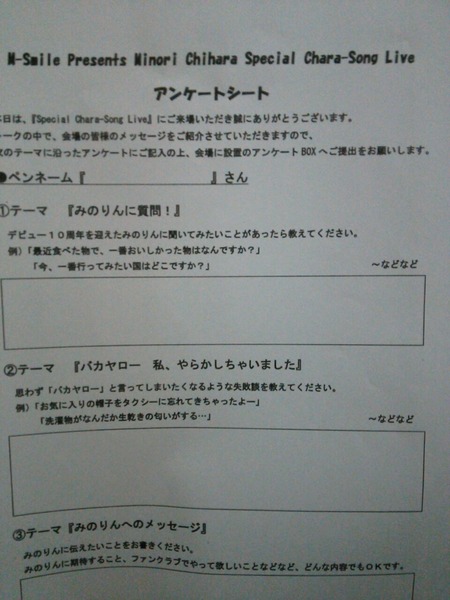 M-Smile Presents Minori Chihara Special Chara-Song Live
アンケートシート
本日は、『Special Chara-Song Live』にご来場いただき誠にありがとうございます。
トークの中で、会場の皆様のメッセージをご紹介させていただきますので、
次のテーマに沿ったアンケートにご記入の上、会場に設置のアンケートBOXへご提出をお願いします。
●ペンネーム『　　　　　　　』さん
①テーマ　『みのりんに質問！』
デビュー１０周年を迎えたみのりんに聞いてみたいことがあったら教えてください。
例）「最近食べた物で、一番おいしかった物はなんですか？」
「今、一番行ってみたい国はどこですか？」　～などなど
②テーマ　『バカヤロー　私、やらかしちゃいました』
思わず「バカヤロー」と言ってしまいたくなるような失敗談を教えてください。
例）「お気に入りの帽子をタクシーに忘れてきちゃったよー」
「洗濯物がなんだか生乾きの匂いがする…」　～などなど
③テーマ『みのりんへのメッセージ』
みのりんに伝えたいことをお書きください。
みのりんに期待すること、ファンクラブでやって欲しいことなどなど、どんな内容でもＯＫです。